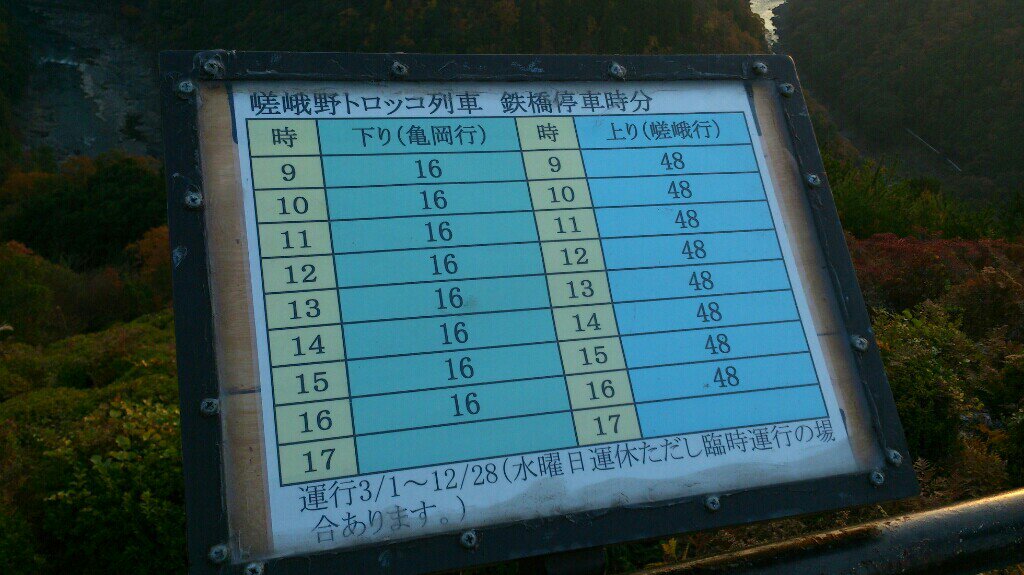 嵯峨野トロッコ列車 鉄橋停車時分
時 下り(亀岡行) 時 上り(嵯峨行)
9 16 9 48
10 16 10 48
11 16 11 48
12 16 12 48
13 16 13 48
14 16 14 48
15 16 15 48
16 16 16 48
17 17
運行3/1～12/28(水曜日運休ただし臨時運行の場
合あります。)